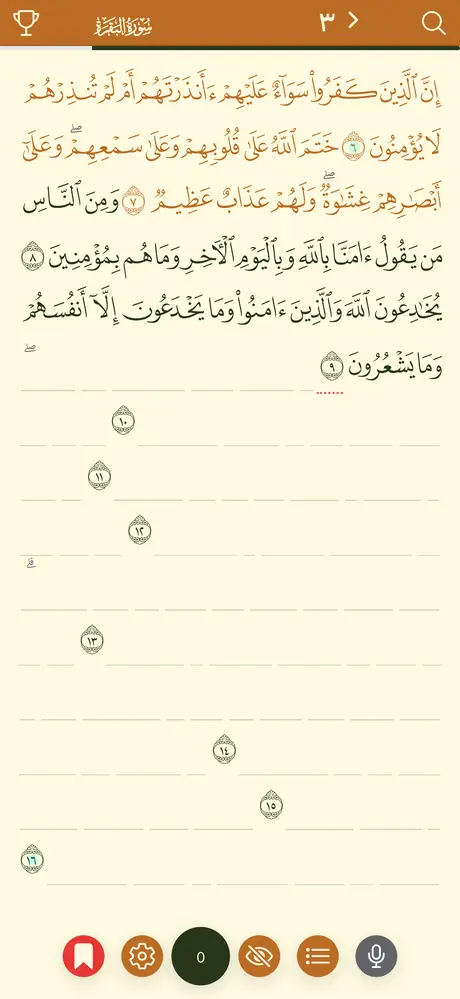 سُورَةُ البَقَرَةِ ٣
إِنَّ ٱلَّذِينَ كَفَرُوا۟ سَوَآءٌ عَلَيْهِمْ ءَأَنذَرْتَهُمْ أَمْ لَمْ تُنذِرْهُمْ
لَا يُؤْمِنُونَ ٦ خَتَمَ ٱللَّهُ عَلَىٰ قُلُوبِهِمْ وَعَلَىٰ سَمْعِهِمْ ۖ وَعَلَىٰٓ
أَبْصَـٰرِهِمْ غِشَـٰوَةٌ ۖ وَلَهُمْ عَذَابٌ عَظِيمٌ ٧ وَمِنَ ٱلنَّاسِ
مَن يَقُولُ ءَامَنَّا بِٱللَّهِ وَبِٱلْيَوْمِ ٱلْـَٔاخِرِ وَمَا هُم بِمُؤْمِنِينَ ٨
يُخَـٰدِعُونَ ٱللَّهَ وَٱلَّذِينَ ءَامَنُوا۟ وَمَا يَخْدَعُونَ إِلَّآ أَنفُسَهُمْ
وَمَا يَشْعُرُونَ ٩ ۖ
١٠
١١
١٢
ۗ
١٣
١٤
١٥
١٦
0